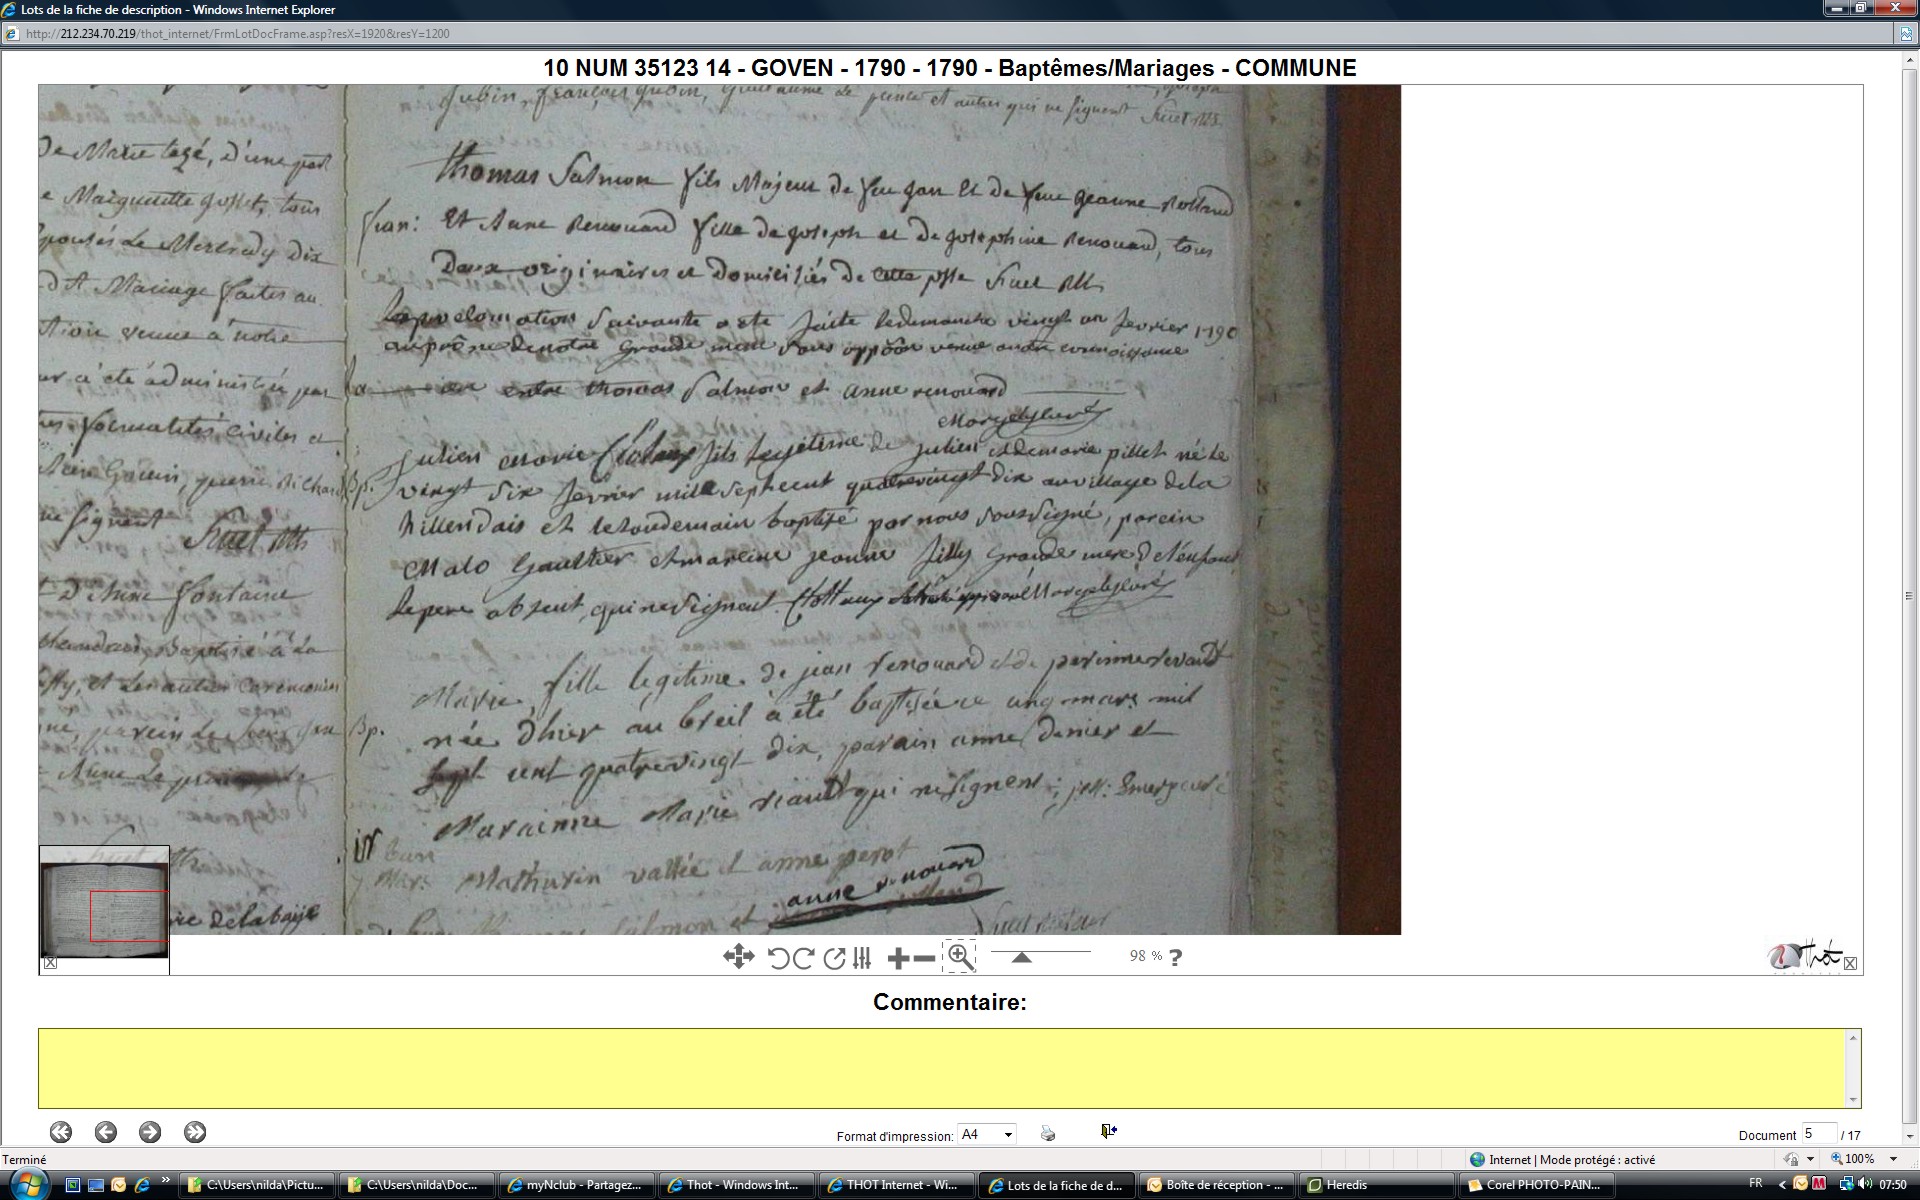 Lots de la fiche de description - Windows Internet Explorer
http://212.234.70.219/thot_internet/FrmLotDocFrame.asp?resX=1920&resY=1200
10 NUM 35123 14 - GOVEN - 1790 - 1790 - Baptêmes/Mariages - COMMUNE
De Marie tezé, d'une part
e Marguerite gosset, tous
pousés Le Mercredy dix
d't Mariage faites au
tion venue à notre
ur a été administrée par
formalités civiles et
ne signent
D'Anne fontaine
Baptisé à La
et les autres Ceremonies
ne, parein
Anne Le
françois gubin, guillaume Le et autres qui ne signent
thomas Salmon fils Majeur de feu jan Et de feue jeanne Rolland
fian: Et Anne Renouard fille de joseph et de josephine Renouard, tous
Deux originaires et Domiciliés de cette psse
La proclomation Suivante a ete faite le dimanche vingt un fevrier 1790
au prône de notre Grande messe sans oppôon venue a notre connoissance
entre thomas Salmon et anne renouard
julien marie fils legitime de julien et de marie pillet né le
Bp. vingt six fevrier mille sept cent quatre vingt dix au village de la
hillendais et le lendemain baptisé par nous Soussigné, parein
Malo Gaultier et mareine jeanne filly Grande mere de l'enfant
le pere absent, qui ne signent
Marie, fille legitime de jean renouard et de perinne revault
Bp. née d'hier au breil à été baptisée ce mars mil
sept cent quatre vingt dix, parain anne Denier et
Maraienne Marie riault qui ne signent
Mar: Mathurin vallée et anne perot
anne renouard
salmon et
de la baije
98 % ?
Thot
Commentaire:
Format d'impression: A4
Document 5 / 17
Terminé
Internet | Mode protégé : activé
100%
C:\Users\nilda\Pictu...
C:\Users\nilda\Doc...
myNclub - Partagez...
Thot - Windows Int...
THOT Internet - Wi...
Lots de la fiche de d...
Boîte de réception - ...
Heredis
Corel PHOTO-PAIN...
FR
07:50